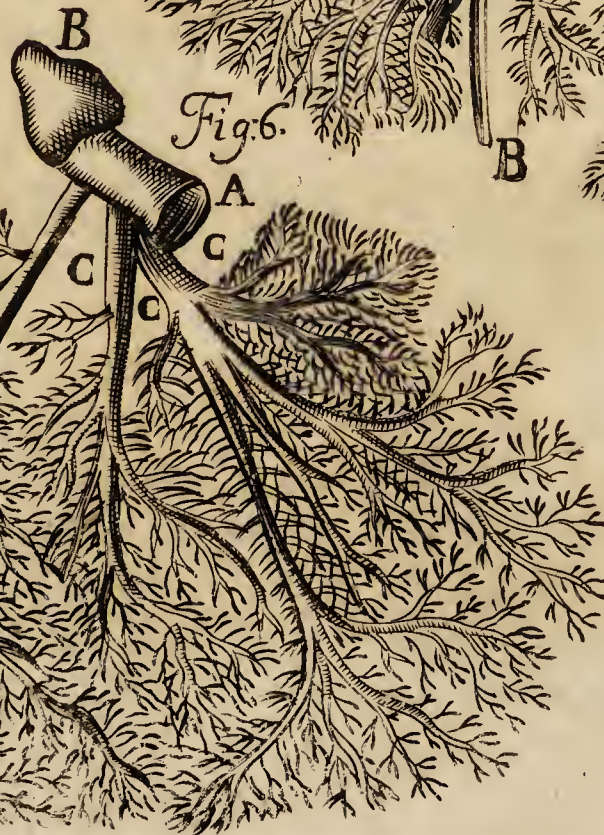 B
Fig:6.
B
A
C
C
C